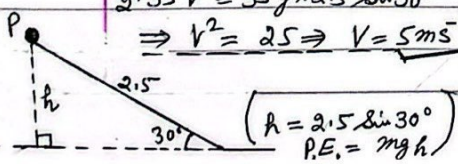 ⇒ V² = 25 ⇒ V = 5ms⁻
P
h
2.5
30°
h = 2.5 Sin 30°
P.E. = mgh